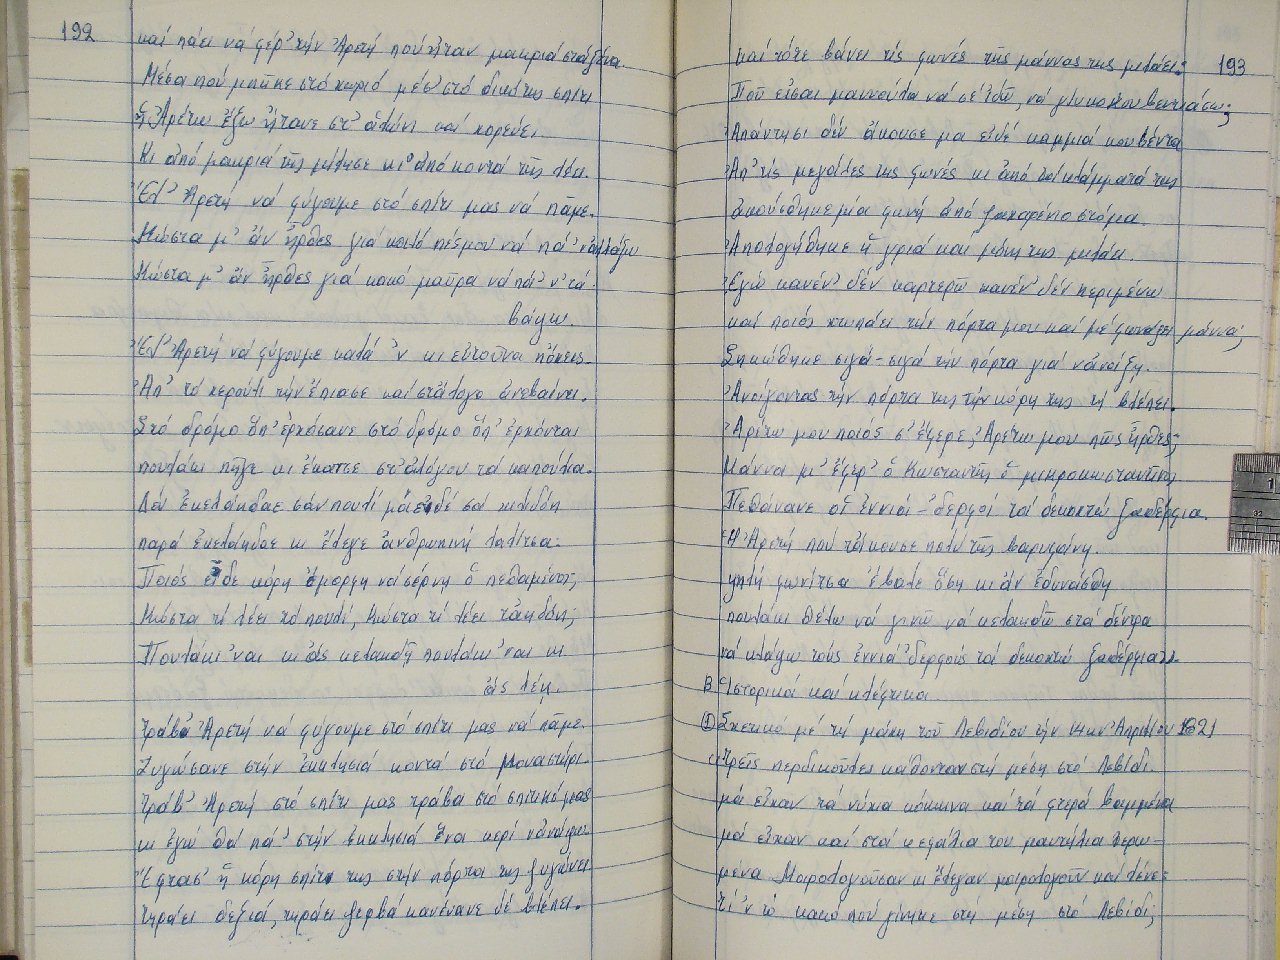 192
καί πάει νά φέρ' τήν Ἀρετή πού ἦταν μακριά στά ξένα.
Μέσα πού μπῆκε στό χωριό μέσ' στό δικό της σπίτι
ἡ Ἀρέτω ἔξω ἤτανε στ' ἁλώνι καί χορεύει.
Κι ἀπό μακριά τῆς μίλησε κι ἀπό κοντά τῆς λέει.
Ἔλ' Ἀρετή νά φύγουμε στό σπίτι μας νά πᾶμε.
Κώστα μ' ἄν ἦρθες γιά καλό πέσμου νά πά' ν' ἀλλάξω
Κώστα μ' ἄν ἦρθες γιά κακό μαῦρα νά πά' ν' τά
βάψω.
Ἔλ' Ἀρετή νά φύγουμε καλά 'ν κι εὐτοῦνα πὄχεις.
Ἀπ' τό χερούλι τήν ἔπιασε καί στἄλογο ἀνεβαίνει.
Στό δρόμο ὅπ' ἐρχόσανε στό δρόμο ὅπ' ἐρχόνται
πουλάκι πῆγε κι ἔκατσε στ' ἀλόγου τά καπούλια.
Δέν ἐκελάηδαε σάν πουλί μά εἰδέ σά χελιδόνι
παρά ἐκελάηδαε κι ἔλεγε ἀνθρωπινή λαλίτσα.
Ποιός εἶδε κόρη ὄμορφη νά σέρνη ὁ πεθαμένος;
Κώστα τί λέει τό πουλί, Κώστα τί λέει τἀηδόνι;
Πουλάκι 'ναι κι ἄς κελαηδῆ πουλάκι 'ναι κι
ἄς λέη.
Τράβα Ἀρετή νά φύγουμε στό σπίτι μας νά πᾶμε.
Ζυγώσανε στήν ἐκκλησιά κοντά στό μοναστήρι.
Τράβ' Ἀρετή στό σπίτι μας τράβα στό σπιτικό μας
κι ἐγώ θά πά' στήν ἐκκλησιά ἕνα κερί ν' ἀνάψω.
Ἔφτασ' ἡ κόρη σπίτι της στήν πόρτα της ζυγώνει
τηράει δεξιά, τηράει ζερβά κανένανε δέ βλέπει.
193
καί τότε βάνει τίς φωνές τῆς μάννας της μιλάει:
Ποῦ εἶσαι μαννούλα νά σέ ἰδῶ, νά γλυκοκουβεντιάσω;
Ἀπάντηση δέν ἄκουσε μα εἰδέ καμμιά κουβέντα
Ἀπ' τίς μεγάλες της φωνές κι ἀπό τά κλάμματά της
ἀκούσθηκε μία φωνή ἀπό φαρμακωμένο στόμα.
Ἀπολογήθηκε ἡ γριά και μόνη της μιλάει.
Ἐγώ κανέν' δέν καρτερῶ κανέν' δέν περιμένω
καί ποιός χτυπάει τήν πόρτα μου καί μέ φωνάζει μάννα;
Σηκώθηκε σιγά-σιγά τήν πόρτα γιά ν' ἀνοίξη.
Ἀνοίγοντας τήν πόρτα της τήν κόρη της τή βλέπει.
Ἀρέτω μου ποιός σ' ἔφερε, Ἀρέτω μου πῶς ἦρθες;
Μάννα μ' ἔφερ' ὁ Κωσταντῆς ὁ μικροκωσταντῖνος
Πεθάνανε οἱ ἐννιά-δερφοί τά δεκοχτώ ξαδέρφια.
Ἡ Ἀρετή πού τἄκουσε πολύ τῆς βαρυφάνη.
ψηλή φωνίτσα ἔβαλε ὅση κι ἄν ἐδυνάσθη
πουλάκι θέλω νά γινῶ νά κελαηδῶ στά δέντρα
νά κλάψω τούς ἐννιά 'δερφούς τά δεκοχτώ ξαδέρφια».
Β Ἱστορικά καί κλέφτικα
① Σχετικό μέ τή μάχη τοῦ Λεβιδίου τήν 14ην Ἀπριλίου 1821
«Τρεῖς περδικοῦλες κάθονταν στή μέση στό Λεβίδι.
μά εἶχαν τά νύχια κόκκινα καί τά φτερά βαμμένα
μά εἶχαν καί στά κεφάλια του μαντήλια λερω-
μένα Μοιρολογοῦσαν κι ἔλεγαν μοιρολογοῦν καί λένε:
Τί 'ν τό κακό πού γίνηκε στή μέση στό Λεβίδι;